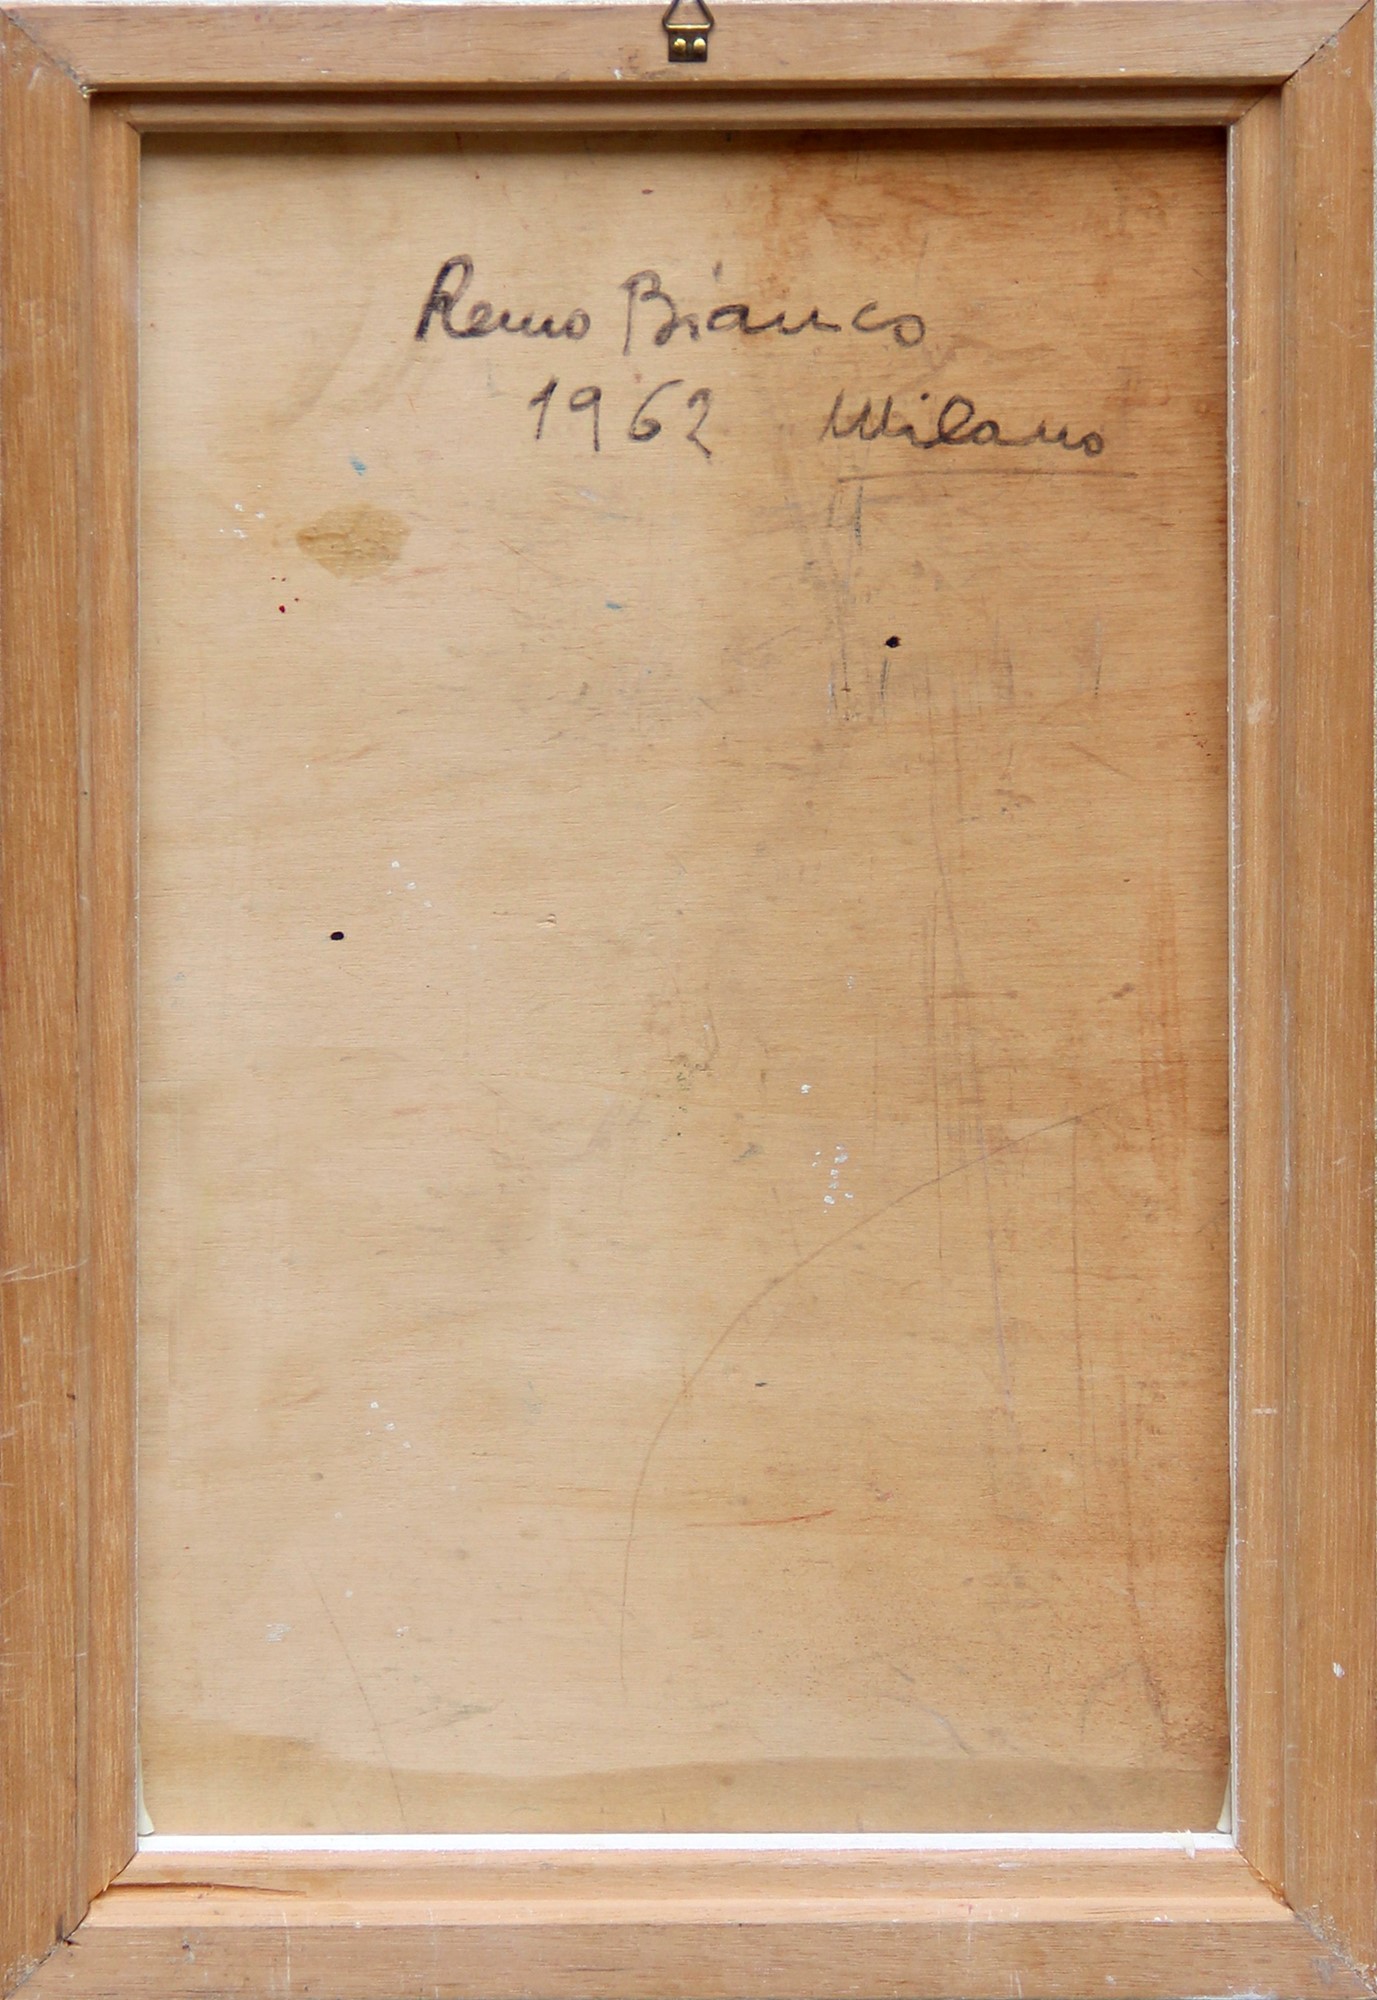 Remo Bianco
1962 Milano